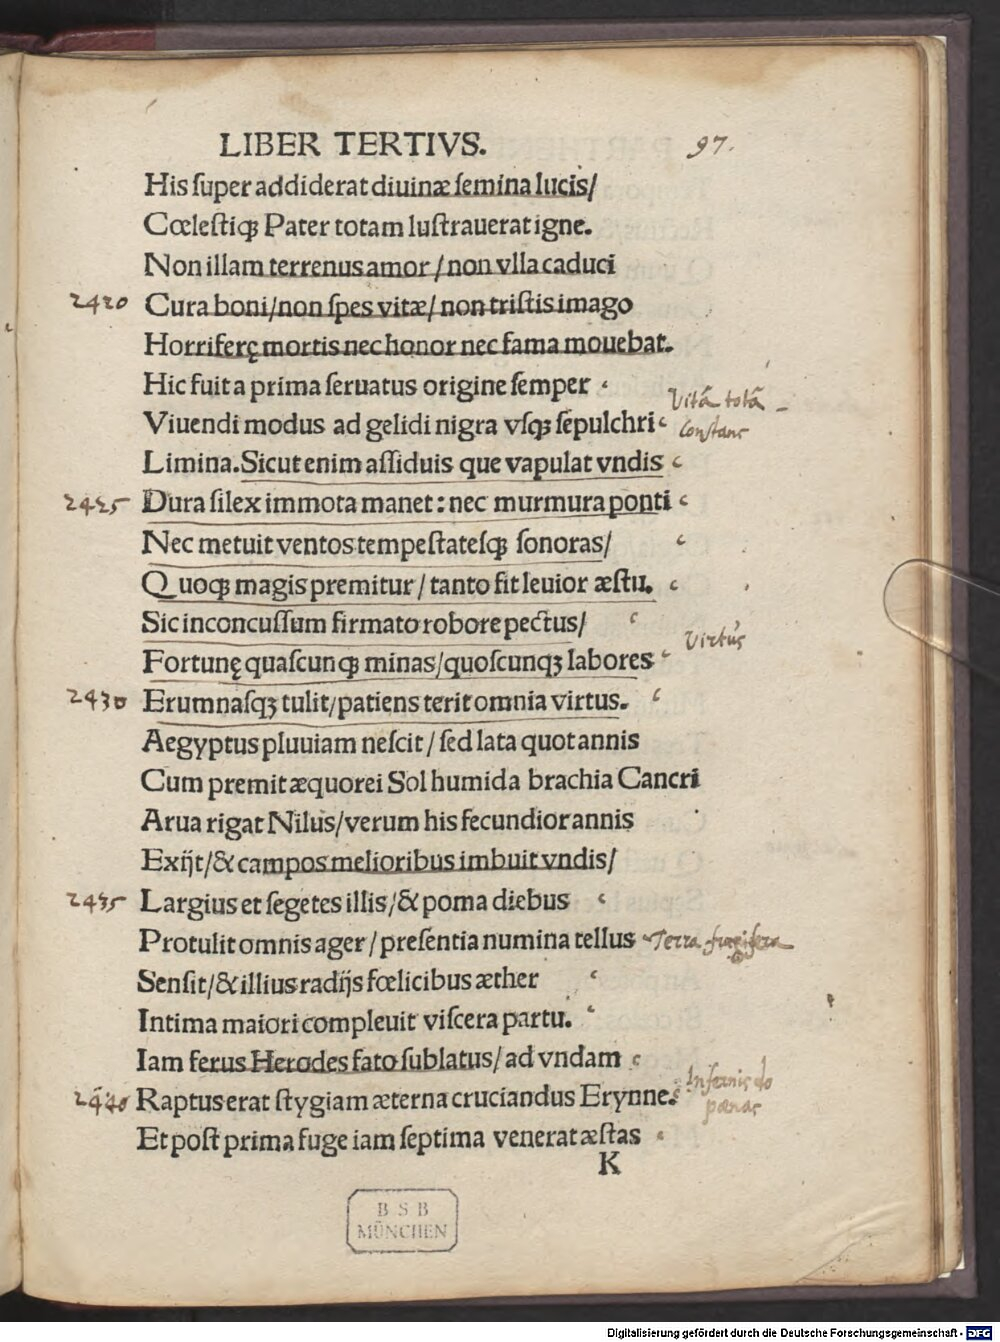 LIBER TERTIVS. 97.
His ſuper addiderat diuinæ ſemina lucis/
Cœleſtiqꝫ Pater totam luſtrauerat igne.
Non illam terrenus amor / non vlla caduci
2420 Cura boni/non ſpes vitæ/ non triſtis imago
Horriferę mortis nec honor nec fama mouebat.
Hic fuit a prima ſeruatus origine ſemper
Vitā totā
Viuendi modus ad gelidi nigra vſqꝫ ſepulchri
Constans
Limina. Sicut enim aſſiduis que vapulat vndis
2425 Dura ſilex immota manet: nec murmura ponti
Nec metuit ventos tempeſtateſqꝫ ſonoras/
Quoqꝫ magis premitur / tanto fit leuior æſtu.
Sic inconcuſſum firmato robore pectus/
Virtus
Fortunę quaſcunqꝫ minas/quoſcunqꝫ labores
2430 Erumnaſqꝫ tulit/patiens terit omnia virtus.
Aegyptus pluuiam neſcit / ſed lata quotannis
Cum premit æquorei Sol humida brachia Cancri
Arua rigat Nilus/verum his fecundior annis
Exijt/& campos melioribus imbuit vndis/
2435 Largius et ſegetes illis/& poma diebus
Protulit omnis ager / preſentia numina tellus Terra frugifera
Senſit/& illius radijs fœlicibus æther
Intima maiori compleuit viſcera partu.
Iam ferus Herodes fato ſublatus/ ad vndam
Infernis do
2440 Raptus erat ſtygiam æterna cruciandus Erynne.
pœnas
Et poſt prima fuge iam ſeptima venerat æſtas
K
B S B
MÜNCHEN
Digitalisierung gefördert durch die Deutsche Forschungsgemeinschaft - DFG